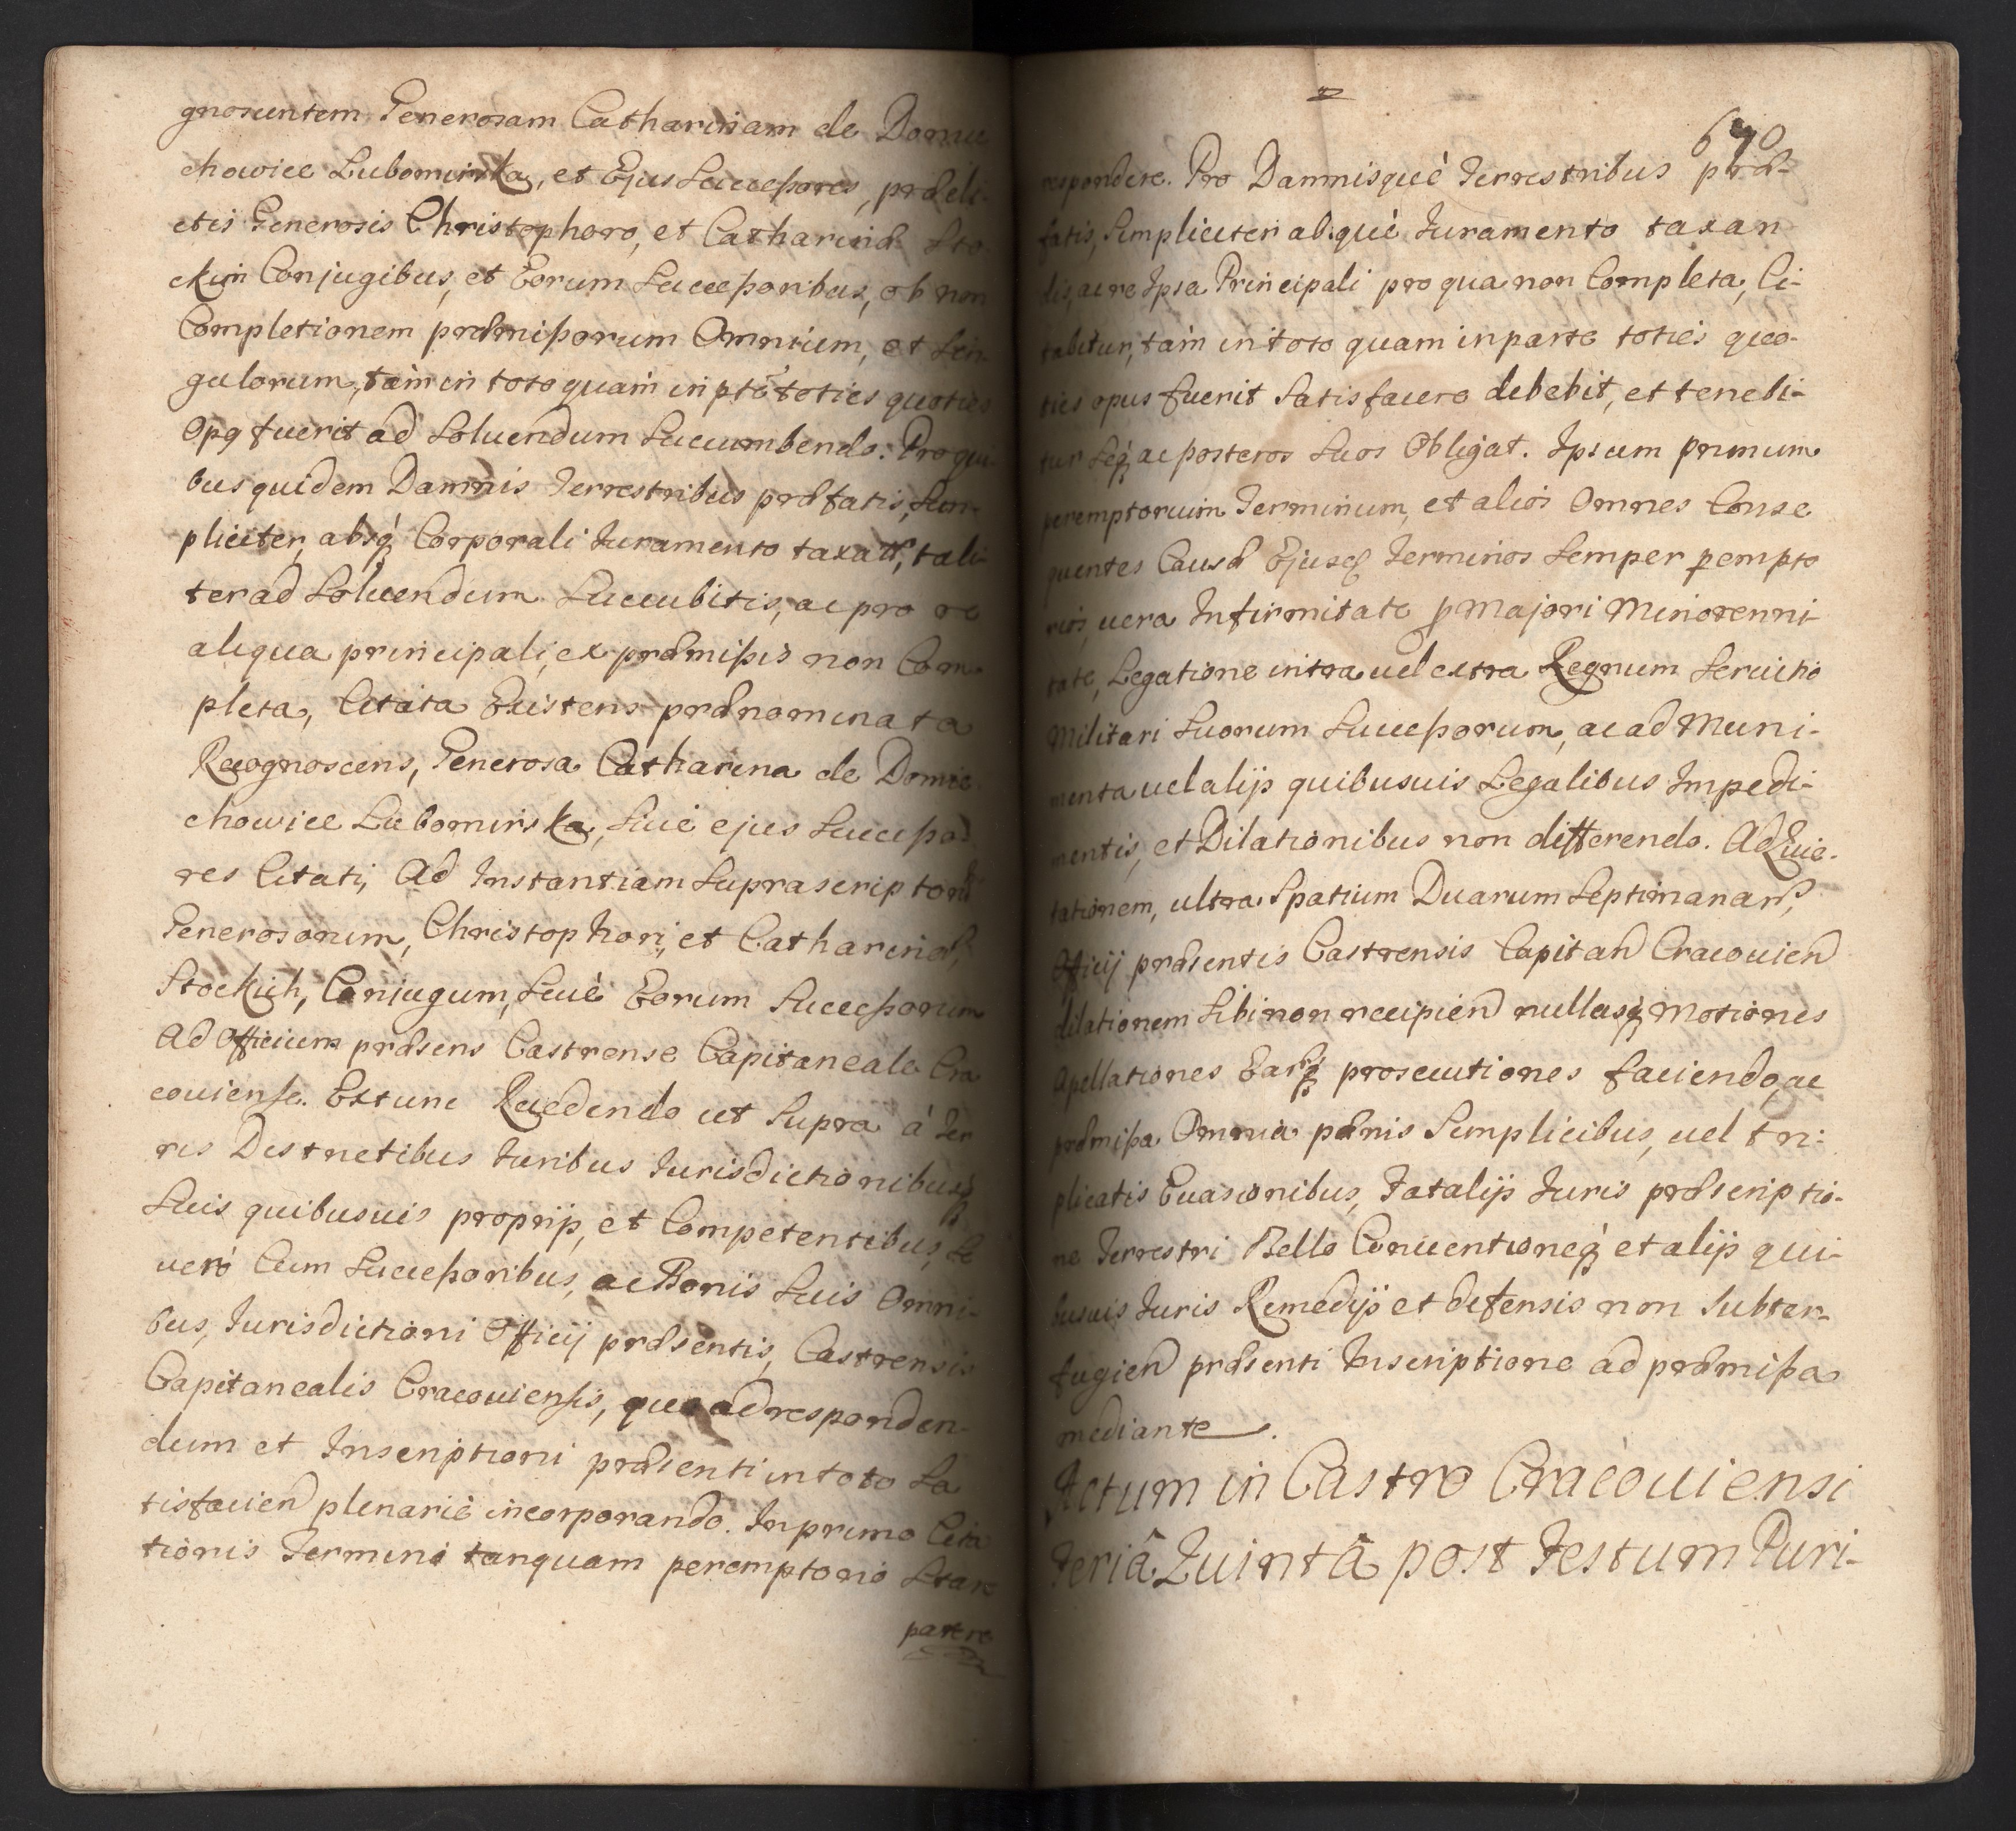 gnoscentem Generosam Catharinam de Domie
chowice Lubomirska, et Ejus Successores, prædile-
ctis Generosis Christophoro, et Catharinæ Sto
ckim Conjugibus, et Eorum Successoribus, ob non
Completionem præmissorum Omnium, et Sin
gulorum, tam in toto quam in pte toties quoties
Opq fuerit ad Soluendum Succumbendo. Pro qui
bus quidem Damnis Terrestribus præfatis, Sim-
pliciter, absq Corporali Juramento taxatis, tali
ter ad Soluendum Succubitis, ac pro re
aliqua principali, ex præmissis non Com
pleta, Citata Existens prænominata
Recognoscens, Generosa Catharina de Domie
chowice Lubomirska, Siue ejus Successo
res Citati, Ad Instantiam Suprascriptoru
Generosorum, Christophori, et Catharinæ,
Stockich, Conjugum, Seuè Eorum Successorum
Ad Officium præsens Castrense Capitaneale Cra
couiense. Extunc Recedendo ut Supra à Ter
ris Districtibus Juribus Jurisdictionibusq
Suis quibusuis proprijs, et Competentibus, Se
verò Cum Successoribus, ac Bonis Suis Omni-
bus, Jurisdictioni Officij præsentis, Castrensis
Capitanealis Cracouiensis, quo ad responden-
dum et Inscriptioni præsenti in toto Sa
tisfacien plenariè incorporando. In primo Cita
tionis Termino tanquam peremptorio Stare
parere
670
respondere. Pro Damnisquè Terrestribus præ-
fatis, Simpliciter absquè Juramento taxan
dis, ac re Ipsa Principali pro qua non Completa, Ci-
tabitur, tam in toto quam in parte toties quo-
ties opus fuerit Satisfacere debebit, et tenebi-
tur Seq ac posteros Suos Obligat. Ipsum primum
peremptorium Terminum, et alios Omnes Conse
quentes Causæ Ejusq Terminos Semper pempto
rios, uera Infirmitate p Majori Minorenni-
tate, Legatione intra uel extra Regnum Seruitio
Militari Suorum Successorum, ac ad Muni-
menta uel alijs quibusuis Legalibus Impedi-
mentis, et Dilationibus non differendo. Ad Euic-
tationem, ultra Spatium Duarum Septimanar,
Officij præsentis Castrensis Capitan Cracouien
dilationem Sibi non recipien nullasq Motiones
Apellationes Earq prosecutiones faciendo, ac
præmissa Omnia pænis Simplicibus, uel tri-
plicatis Euasionibus, Fatalijs Juris præscriptio-
ne Terrestri Bello Conuentioneq et alijs qui-
busuis Juris Remedijs et defensis non Subter-
fugien præsenti Inscriptione ad præmissa
mediante.
Actum in Castro Cracouiensi
Feriâ Quintâ post Festum Puri-